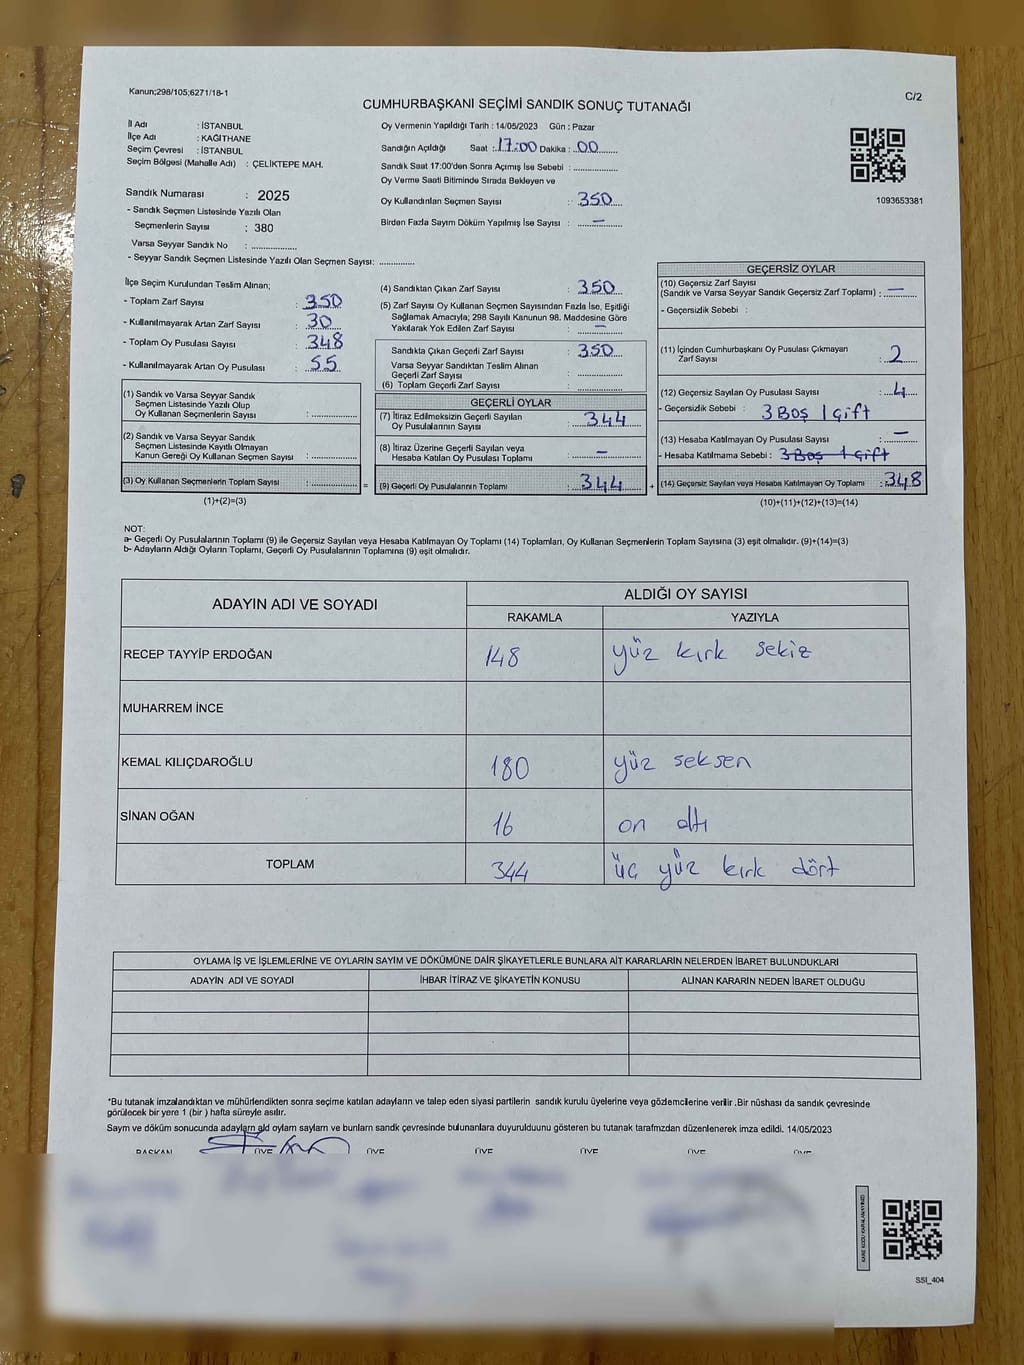 Kanun;298/105;6271/18-1
C/2
CUMHURBAŞKANI SEÇİMİ SANDIK SONUÇ TUTANAĞI
İl Adı : İSTANBUL
İlçe Adı : KAĞITHANE
Seçim Çevresi : İSTANBUL
Seçim Bölgesi (Mahalle Adı) : ÇELİKTEPE MAH.
Sandık Numarası : 2025
- Sandık Seçmen Listesinde Yazılı Olan
Seçmenlerin Sayısı : 380
Varsa Seyyar Sandık No : ................
- Seyyar Sandık Seçmen Listesinde Yazılı Olan Seçmen Sayısı: ............
Oy Vermenin Yapıldığı Tarih : 14/05/2023 Gün : Pazar
Sandığın Açıldığı Saat : 17:00 Dakika : 00
Sandık Saat 17:00'den Sonra Açımış İse Sebebi : ................
Oy Verme Saati Bitiminde Sırada Bekleyen ve
Oy Kullandırılan Seçmen Sayısı : 350
Birden Fazla Sayım Döküm Yapılmış İse Sayısı : —
1093653381
İlçe Seçim Kurulundan Teslim Alınan;
- Toplam Zarf Sayısı : 350
- Kullanılmayarak Artan Zarf Sayısı : 30
- Toplam Oy Pusulası Sayısı : 348
- Kullanılmayarak Artan Oy Pusulası : 55
(1) Sandık ve Varsa Seyyar Sandık
Seçmen Listesinde Yazılı Olup
Oy Kullanan Seçmenlerin Sayısı : ............
(2) Sandık ve Varsa Seyyar Sandık
Seçmen Listesinde Kayıtlı Olmayan
Kanun Gereği Oy Kullanan Seçmen Sayısı : ............
(3) Oy Kullanan Seçmenlerin Toplam Sayısı : ............ =
(1)+(2)=(3)
(4) Sandıktan Çıkan Zarf Sayısı : 350
(5) Zarf Sayısı Oy Kullanan Seçmen Sayısından Fazla İse, Eşitliği
Sağlamak Amacıyla; 298 Sayılı Kanunun 98. Maddesine Göre
Yakılarak Yok Edilen Zarf Sayısı : —
Sandıkta Çıkan Geçerli Zarf Sayısı : 350
Varsa Seyyar Sandıktan Teslim Alınan
Geçerli Zarf Sayısı : ............
(6) Toplam Geçerli Zarf Sayısı : ............
GEÇERLİ OYLAR
(7) İtiraz Edilmeksizin Geçerli Sayılan
Oy Pusulalarının Sayısı : 344
(8) İtiraz Üzerine Geçerli Sayılan veya
Hesaba Katılan Oy Pusulası Toplamı : —
(9) Geçerli Oy Pusulalarının Toplamı : 344 +
GEÇERSİZ OYLAR
(10) Geçersiz Zarf Sayısı
(Sandık ve Varsa Seyyar Sandık Geçersiz Zarf Toplamı) : —
- Geçersizlik Sebebi :
(11) İçinden Cumhurbaşkanı Oy Pusulası Çıkmayan
Zarf Sayısı : 2
(12) Geçersiz Sayılan Oy Pusulası Sayısı : 4
- Geçersizlik Sebebi : 3 Boş 1 Çift
(13) Hesaba Katılmayan Oy Pusulası Sayısı : —
- Hesaba Katılmama Sebebi : 3 Boş 1 Çift
(14) Geçersiz Sayılan veya Hesaba Katılmayan Oy Toplamı : 348
(10)+(11)+(12)+(13)=(14)
NOT:
a- Geçerli Oy Pusulalarının Toplamı (9) ile Geçersiz Sayılan veya Hesaba Katılmayan Oy Toplamı (14) Toplamları, Oy Kullanan Seçmenlerin Toplam Sayısına (3) eşit olmalıdır. (9)+(14)=(3)
b- Adayların Aldığı Oyların Toplamı, Geçerli Oy Pusulalarının Toplamına (9) eşit olmalıdır.
ADAYIN ADI VE SOYADI
ALDIĞI OY SAYISI
RAKAMLA YAZIYLA
RECEP TAYYİP ERDOĞAN 148 yüz kırk sekiz
MUHARREM İNCE
KEMAL KILIÇDAROĞLU 180 yüz seksen
SİNAN OĞAN 16 on altı
TOPLAM 344 üç yüz kırk dört
OYLAMA İŞ VE İŞLEMLERİNE VE OYLARIN SAYIM VE DÖKÜMÜNE DAİR ŞİKAYETLERLE BUNLARA AİT KARARLARIN NELERDEN İBARET BULUNDUKLARI
ADAYIN ADI VE SOYADI İHBAR İTİRAZ VE ŞİKAYETİN KONUSU ALINAN KARARIN NEDEN İBARET OLDUĞU
*Bu tutanak imzalandıktan ve mühürlendikten sonra seçime katılan adayların ve talep eden siyasi partilerin sandık kurulu üyelerine veya gözlemcilerine verilir .Bir nüshası da sandık çevresinde
görülecek bir yere 1 (bir ) hafta süreyle asılır.
Sayım ve döküm sonucunda adayların ald oyların sayların ve bunların sandk çevresinde bulunanlara duyurulduunu gösteren bu tutanak tarafmzdan düzenlenerek imza edildi. 14/05/2023
BAŞKAN ÜYE ÜYE ÜYE ÜYE ÜYE ÜYE
SSI_404